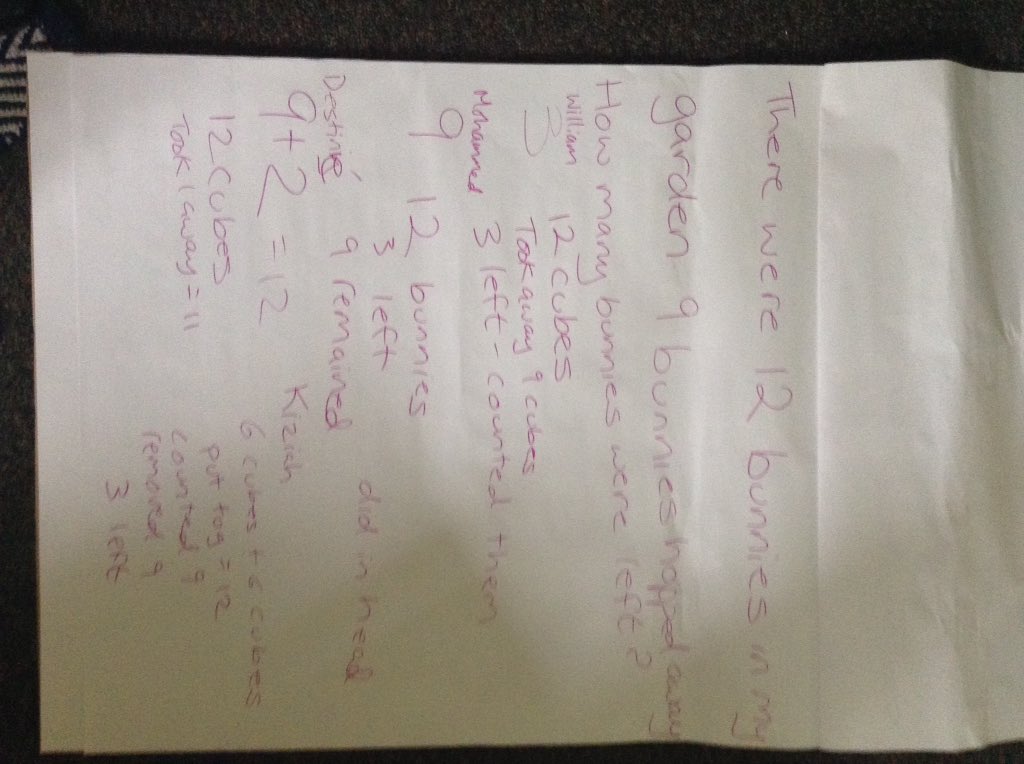 There were 12 bunnies in my
garden 9 bunnies hopped away
How many bunnies were left?
William 12 cubes
Took away 9 cubes
3 left - counted them
Mohammed
9 12 bunnies
3 left did in head
9 remained
Destiné
9 + 2 = 12
12 cubes
Took 1 away = 11
Kiziah
6 cubes + 6 cubes
put tog = 12
counted 9
removed 9
3 left